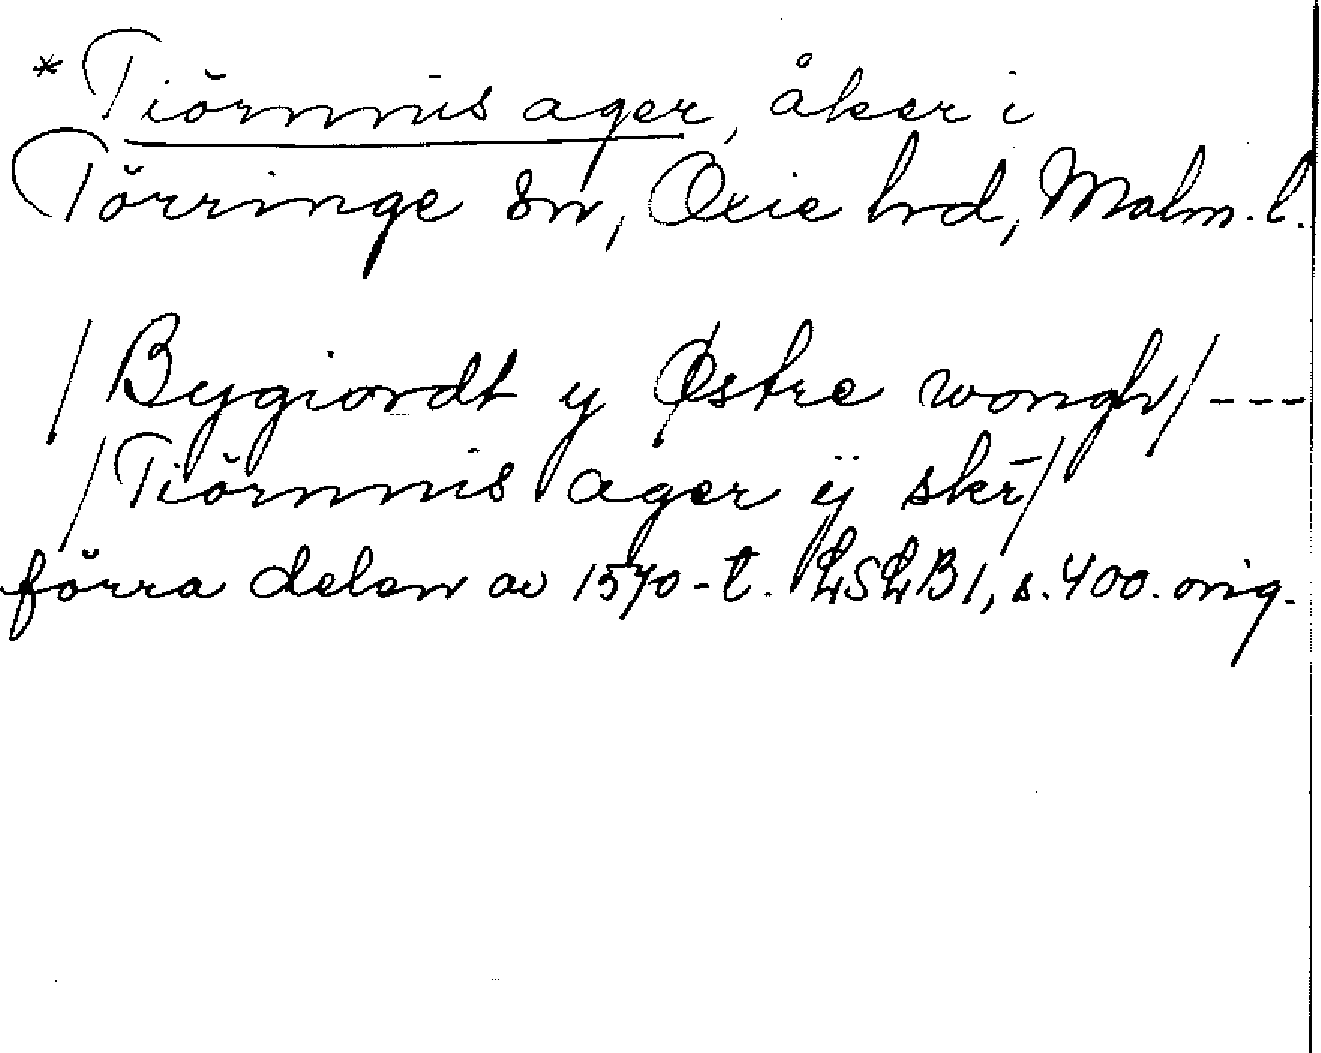 * Tiörnnis ager, åker i
Törringe sn, Oxie hrd, Malm. l.
/Bygiordt y Østre wongh/ ---
/Tiörnnis ager ÿ skr̄/
förra delen av 1570-t. LSLB1, s. 400. orig.